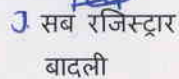 सब रजिस्ट्रार
बादली